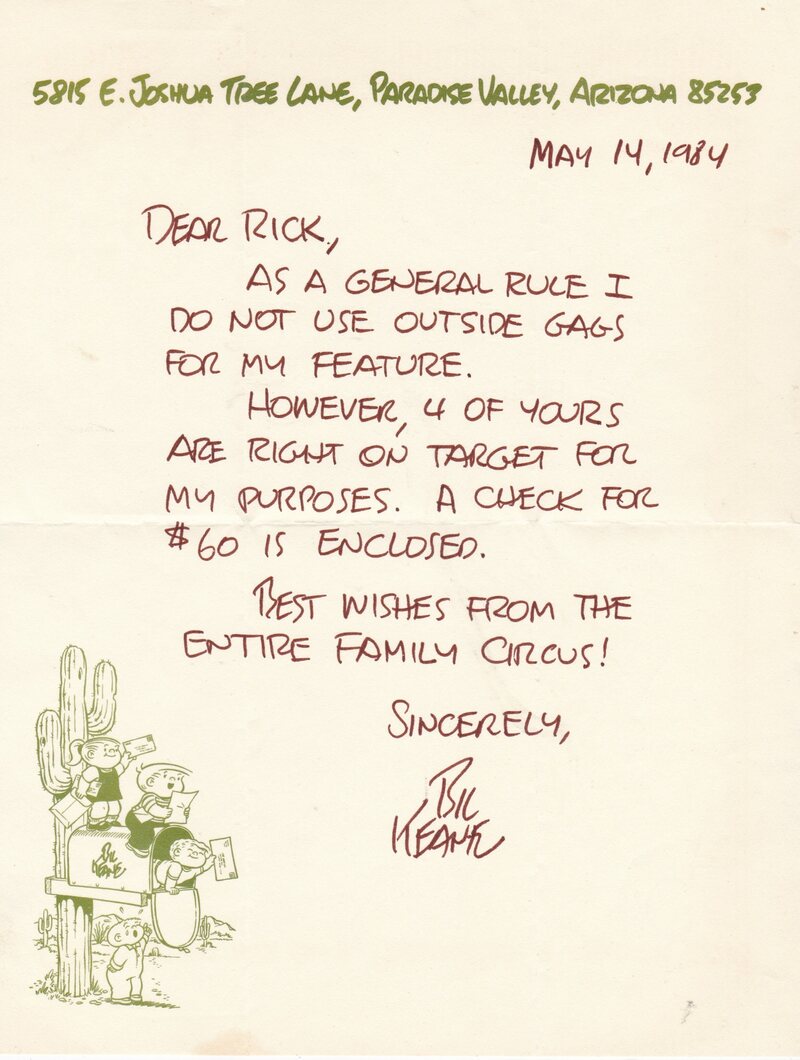 5815 E. JOSHUA TREE LANE, PARADISE VALLEY, ARIZONA 85253
MAY 14, 1984
DEAR RICK,
AS A GENERAL RULE I
DO NOT USE OUTSIDE GAGS
FOR MY FEATURE.
HOWEVER, 4 OF YOURS
ARE RIGHT ON TARGET FOR
MY PURPOSES. A CHECK FOR
$60 IS ENCLOSED.
BEST WISHES FROM THE
ENTIRE FAMILY CIRCUS!
SINCERELY,
BIL
KEANE
BIL
KEANE